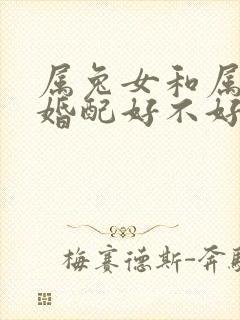 属兔女和属
婚配好不好
梅赛德斯-奔